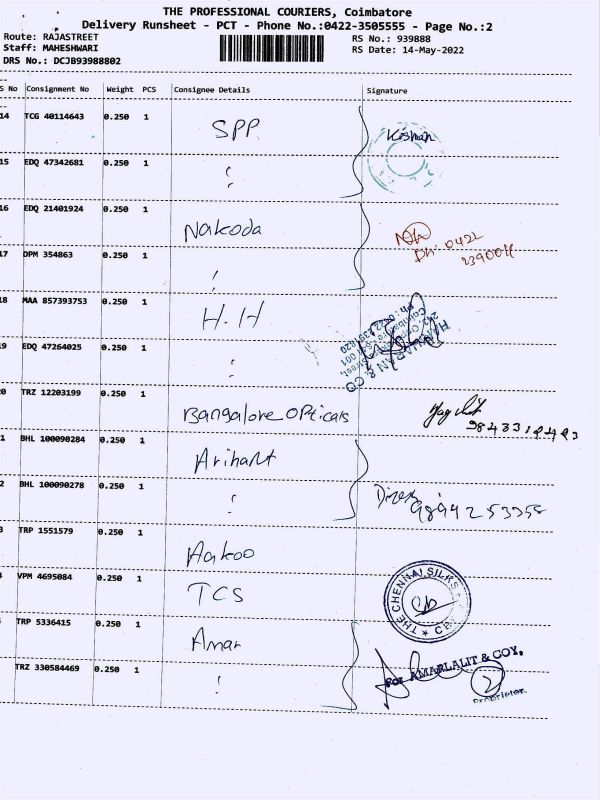 THE PROFESSIONAL COURIERS, Coimbatore
Delivery Runsheet - PCT - Phone No.:0422-3505555 - Page No.:2
Route: RAJASTREET
RS No.: 939888
Staff: MAHESHWARI
RS Date: 14-May-2022
DRS No.: DCJB93988802
S No Consignment No Weight PCS Consignee Details Signature
14 TCG 40114643 0.250 1 SPP
15 EDQ 47342681 0.250 1
16 EDQ 21401924 0.250 1 Nakoda
Ph: 0422
17 DPM 354863 0.250 1
18 MAA 857393753 0.250 1 H.H
HARIHARAN & CO
9 EDQ 47264025 0.250 1
0 TRZ 12203199 0.250 1 Bangalore Opticals
1 BHL 100090284 0.250 1 Arihant
2 BHL 100090278 0.250 1
3 TRP 1551579 0.250 1 Aakoo
VPM 4695084 0.250 1 TCS
THE CHENNAI SILKS
TRP 5336415 0.250 1 Amar
For AMARLALIT & COY,
TRZ 330584469 0.250 1
2
Proprietor